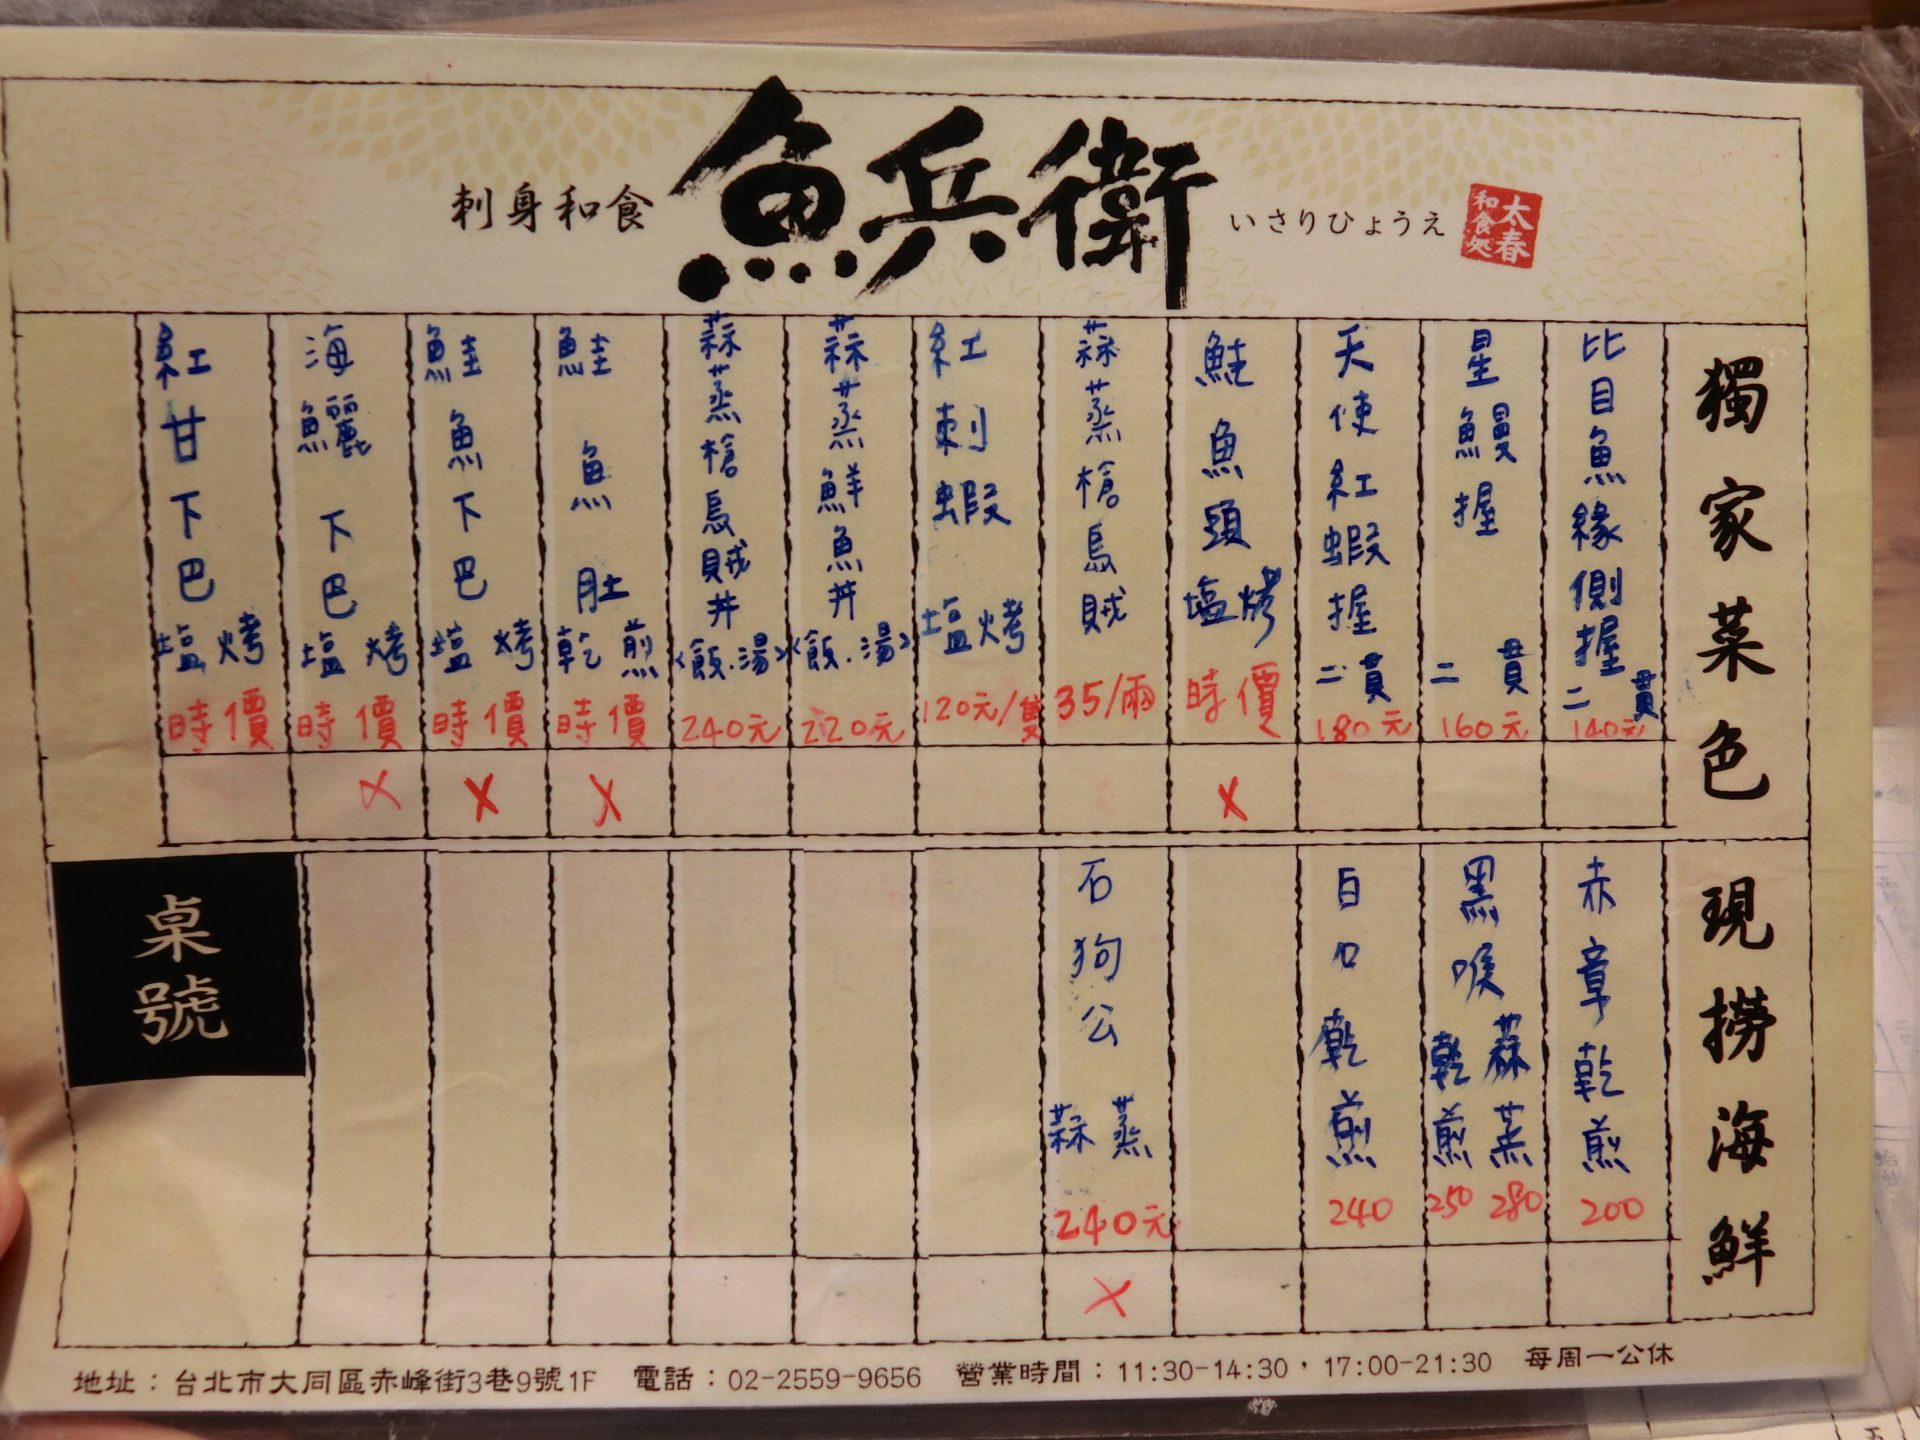 刺身和食
魚兵衛
いさりひょうえ
太春
和食処
獨家菜色
比目魚緣側握 二貫 140元
星鰻握 二貫 160元
天使紅蝦握 二貫 180元
鮭魚頭 塩烤 時價 X
蒜蒸槍烏賊 35/兩
紅刺蝦 塩烤 120元/隻
蒜蒸鮮魚丼 <飯.湯> 220元
蒜蒸槍烏賊丼 <飯.湯> 240元
鮭魚肚 乾煎 時價 X
鮭魚下巴 塩烤 時價 X
海鱺下巴 塩烤 時價 X
紅甘下巴 塩烤 時價
現撈海鮮
赤章 乾煎 200
黑喉 蒜蒸 280 乾煎 250
白口 乾煎 240
石狗公 蒜蒸 240元 X
桌號
地址：台北市大同區赤峰街3巷9號1F 電話：02-2559-9656 營業時間：11:30-14:30，17:00-21:30 每周一公休